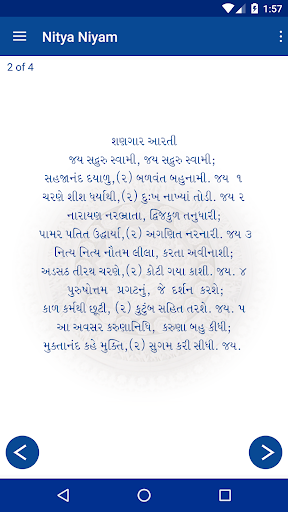 1:57
Nitya Niyam
2 of 4
શણગાર આરતી
જય સદ્ગુરુ સ્વામી, જય સદ્ગુરુ સ્વામી;
સહજાનંદ દયાળુ,(૨) બળવંત બહુનામી. જય ૧
ચરણે શીશ ધર્યાથી,(૨) દુઃખ નાખ્યાં તોડી. જય ૨
નારાયણ નરભ્રાતા, દ્વિજકુળ તનુધારી;
પામર પતિત ઉદ્ધાર્યા,(૨) અગણિત નરનારી. જય ૩
નિત્ય નિત્ય નૌતમ લીલા, કરતા અવીનાશી;
અડસઠ તીરથ ચરણે,(૨) કોટી ગયા કાશી. જય. ૪
પુરુષોત્તમ પ્રગટનું, જે દર્શન કરશે;
કાળ કર્મથી છૂટી, (૨) કુટુંબ સહિત તરશે. જય. ૫
આ અવસર કરુણાનિધિ, કરુણા બહુ કીધી;
મુક્તાનંદ કહે મુક્તિ,(૨) સુગમ કરી સીધી. જય.